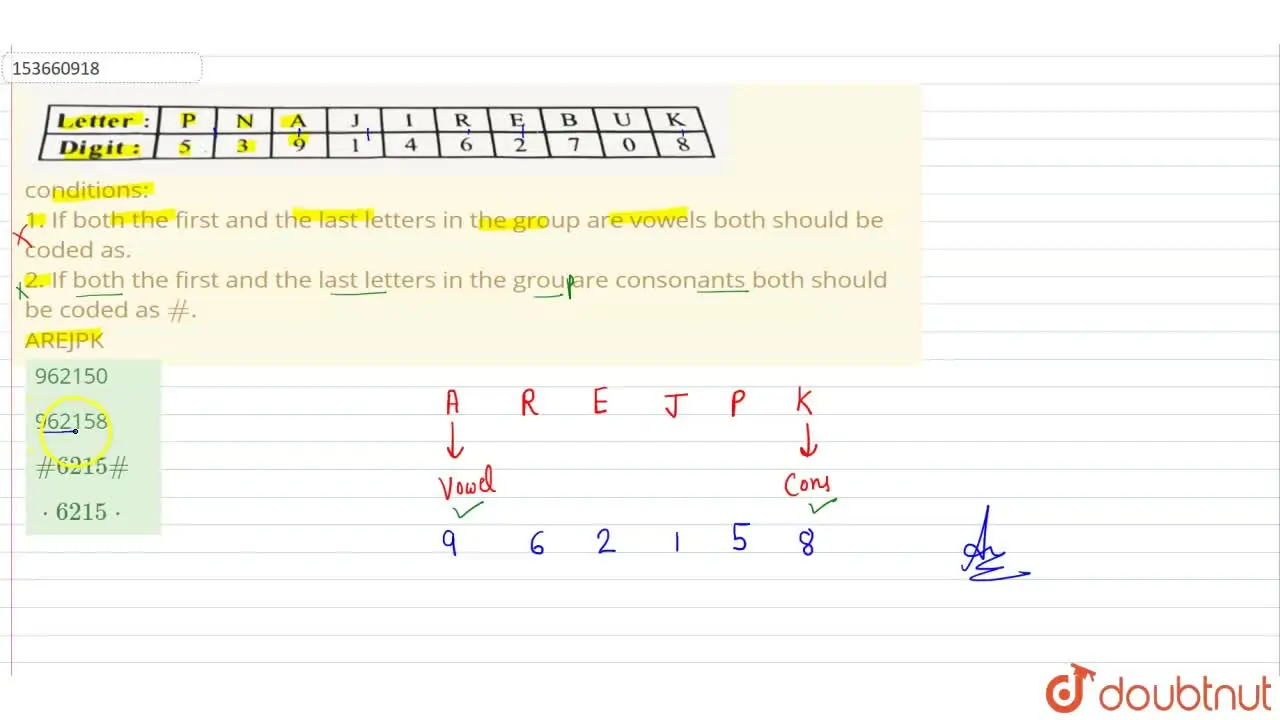 153660918
Letter : P N A J I R E B U K
Digit : 5 3 9 1 4 6 2 7 0 8
conditions:
1. If both the first and the last letters in the group are vowels both should be
coded as.
2. If both the first and the last letters in the group are consonants both should
be coded as #.
AREJPK
962150
962158
#6215#
· 6215 ·
A R E J P K
Vowel Cons
9 6 2 1 5 8
doubtnut